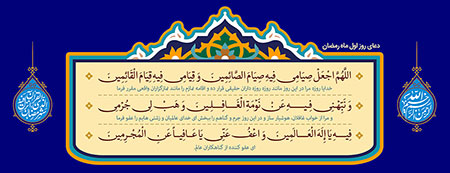 دعای روز اول ماه رمضان
اللَّهُمَّ اجْعَلْ صِیَامِی فِیهِ صِیَامَ الصَّائِمِینَ وَ قِیَامِی فِیهِ قِیَامَ الْقَائِمِینَ
خدایا روزه مرا در این روز مانند روزه روزه داران حقیقی قرار ده و اقامه نمازم را مانند نمازگزاران واقعی مقرر فرما
وَ نَبِّهْنِی فِیهِ عَنْ نَوْمَةِ الْغَافِلِینَ وَ هَبْ لِی جُرْمِی
و مرا از خواب غافلان هوشیار ساز و در این روز جرم و گناهم را ببخش ای خدای عالمیان و زشتی هایم را عفو فرما
فِیهِ یَا إِلَهَ الْعَالَمِینَ وَ اعْفُ عَنِّی یَا عَافِیاً عَنِ الْمُجْرِمِینَ
ای عفو کننده از گناهکاران عالم